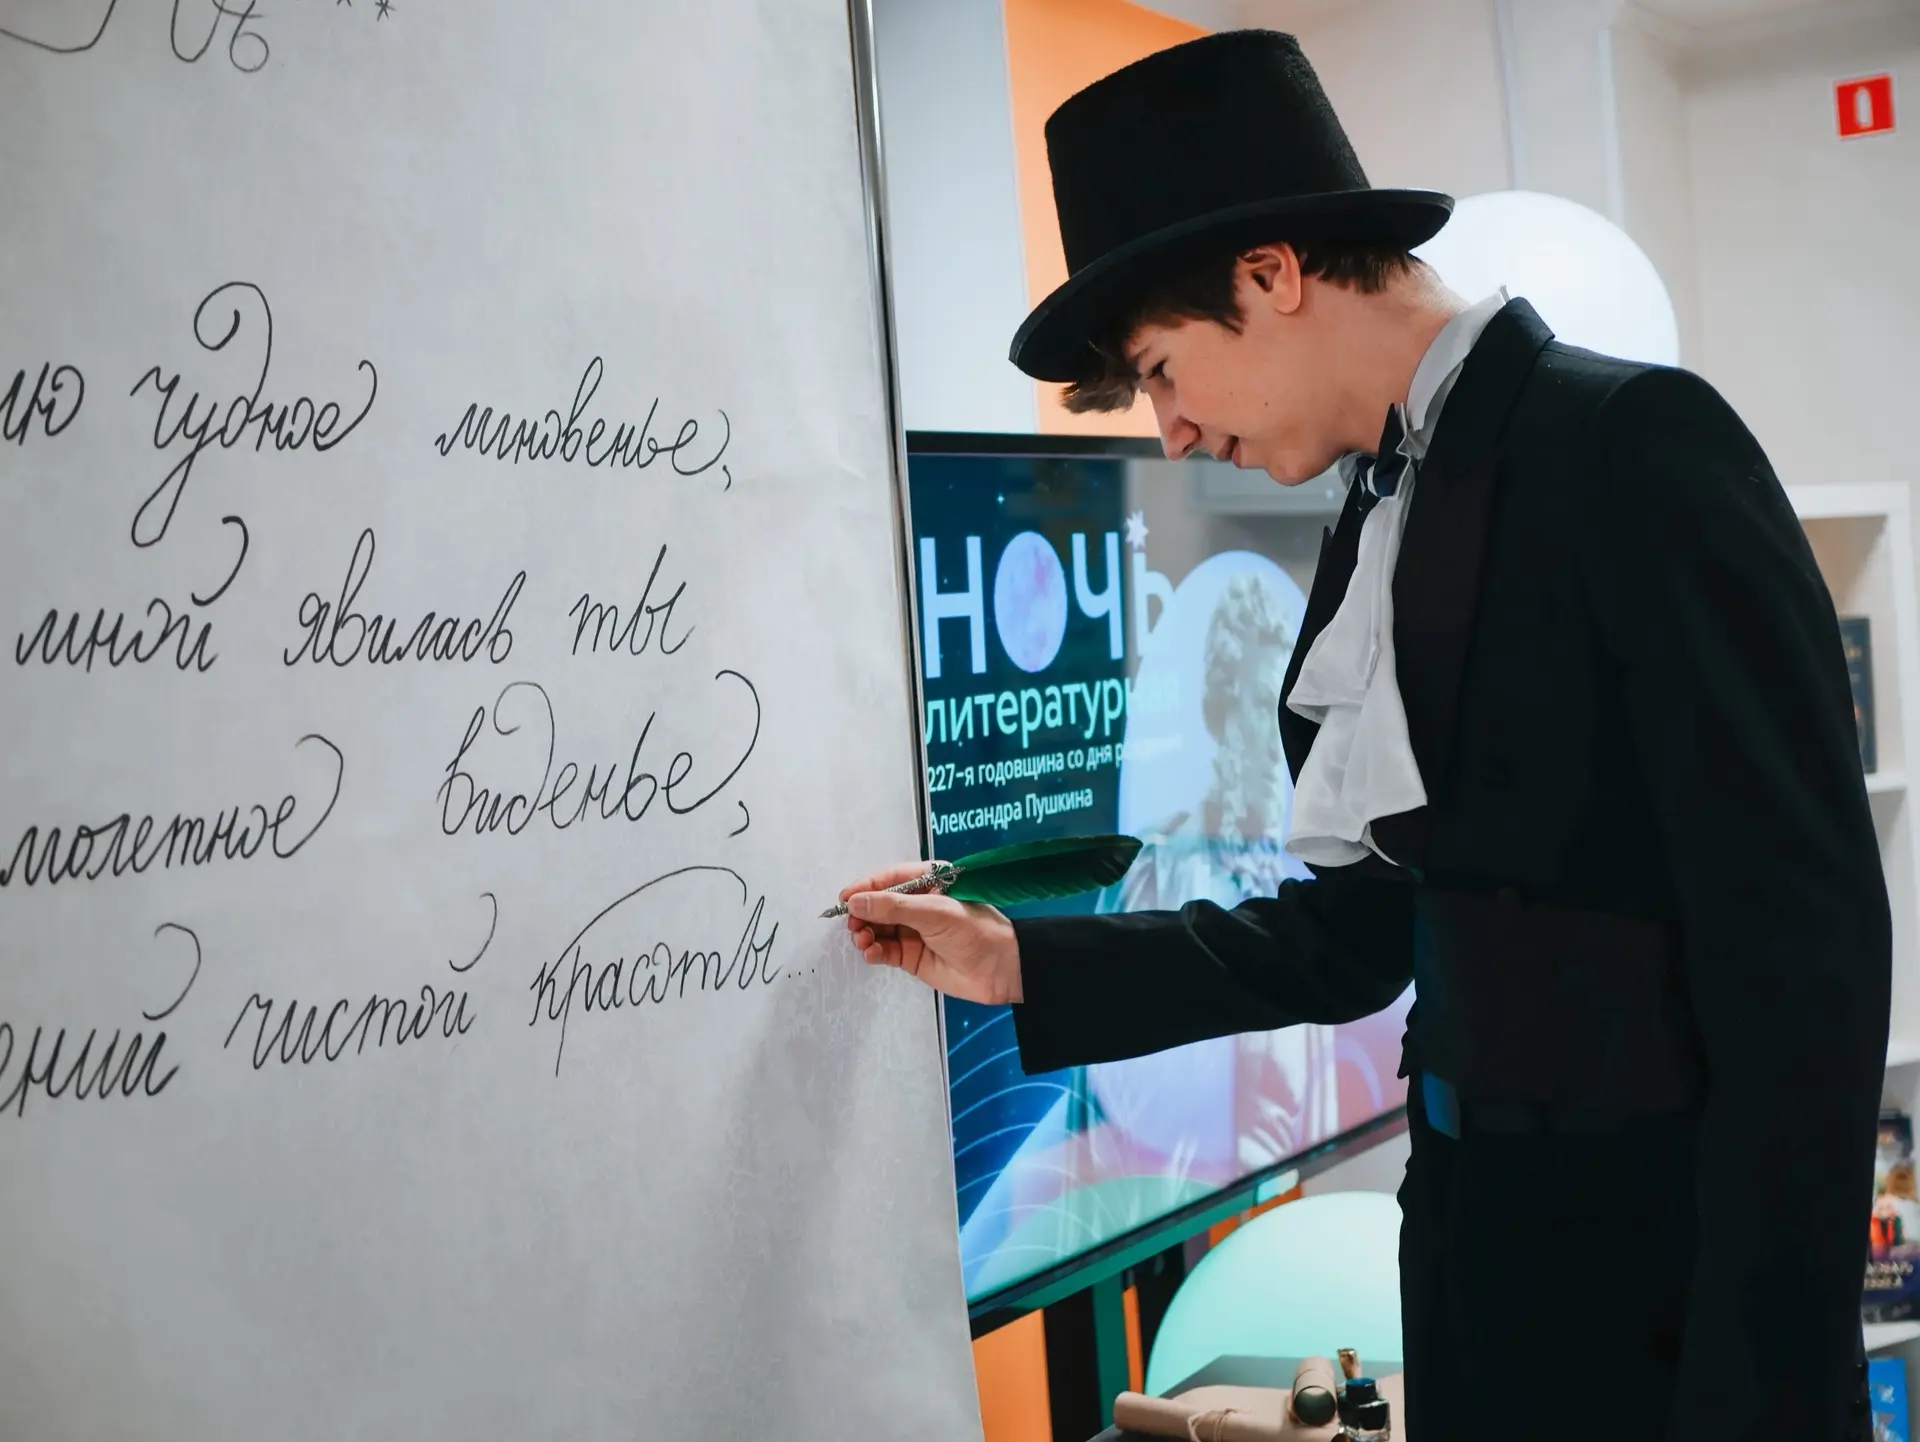 чудное мгновенье,
мной явилась ты
виденье,
чистой красоты...
НОЧЬ
литературная
227-я годовщина со дня
Александра Пушкина